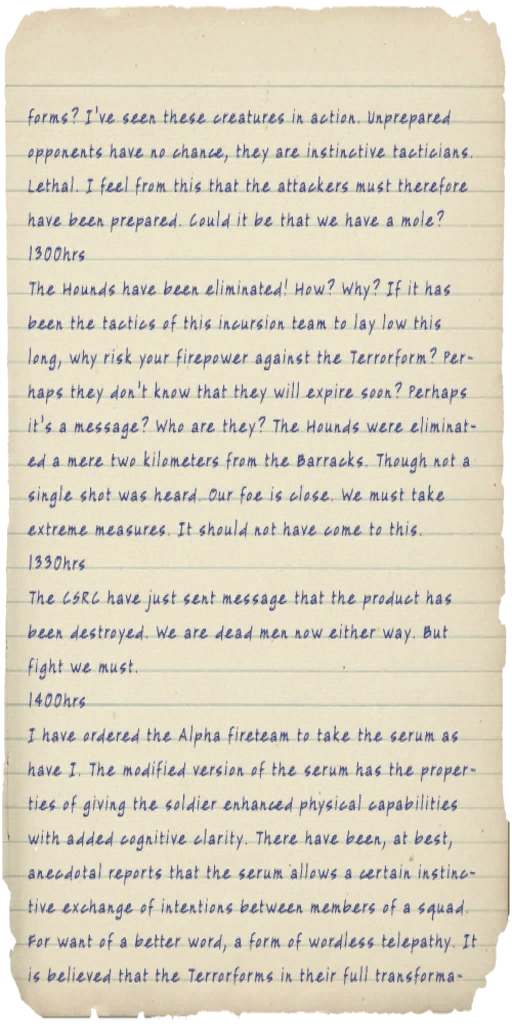 forms? I've seen these creatures in action. Unprepared
opponents have no chance, they are instinctive tacticians.
Lethal. I feel from this that the attackers must therefore
have been prepared. Could it be that we have a mole?
1300hrs
The Hounds have been eliminated! How? Why? If it has
been the tactics of this incursion team to lay low this
long, why risk your firepower against the Terrorform? Per-
haps they don't know that they will expire soon? Perhaps
it's a message? Who are they? The Hounds were eliminat-
ed a mere two kilometers from the Barracks. Though not a
single shot was heard. Our foe is close. We must take
extreme measures. It should not have come to this.
1330hrs
The CSRC have just sent message that the product has
been destroyed. We are dead men now either way. But
fight we must.
1400hrs
I have ordered the Alpha fireteam to take the serum as
have I. The modified version of the serum has the proper-
ties of giving the soldier enhanced physical capabilities
with added cognitive clarity. There have been, at best,
anecdotal reports that the serum allows a certain instinc-
tive exchange of intentions between members of a squad.
For want of a better word, a form of wordless telepathy. It
is believed that the Terrorforms in their full transforma-